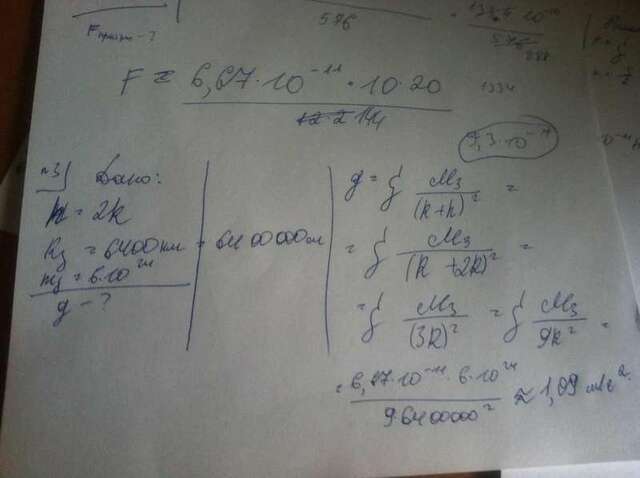 Fпритяж - ?
576
F = 6,67·10⁻¹¹·10·20
144
1334
9,3·10⁻¹¹
№3 Дано:
h = 2R
Rз = 6400км = 6400000м
mз = 6·10²⁴
g - ?
g = G Mз/(R+h)² =
= G Mз/(R+2R)² =
= G Mз/(3R)² = G Mз/9R² =
= 6,67·10⁻¹¹·6·10²⁴/9·6400000² ≈ 1,09 м/с²